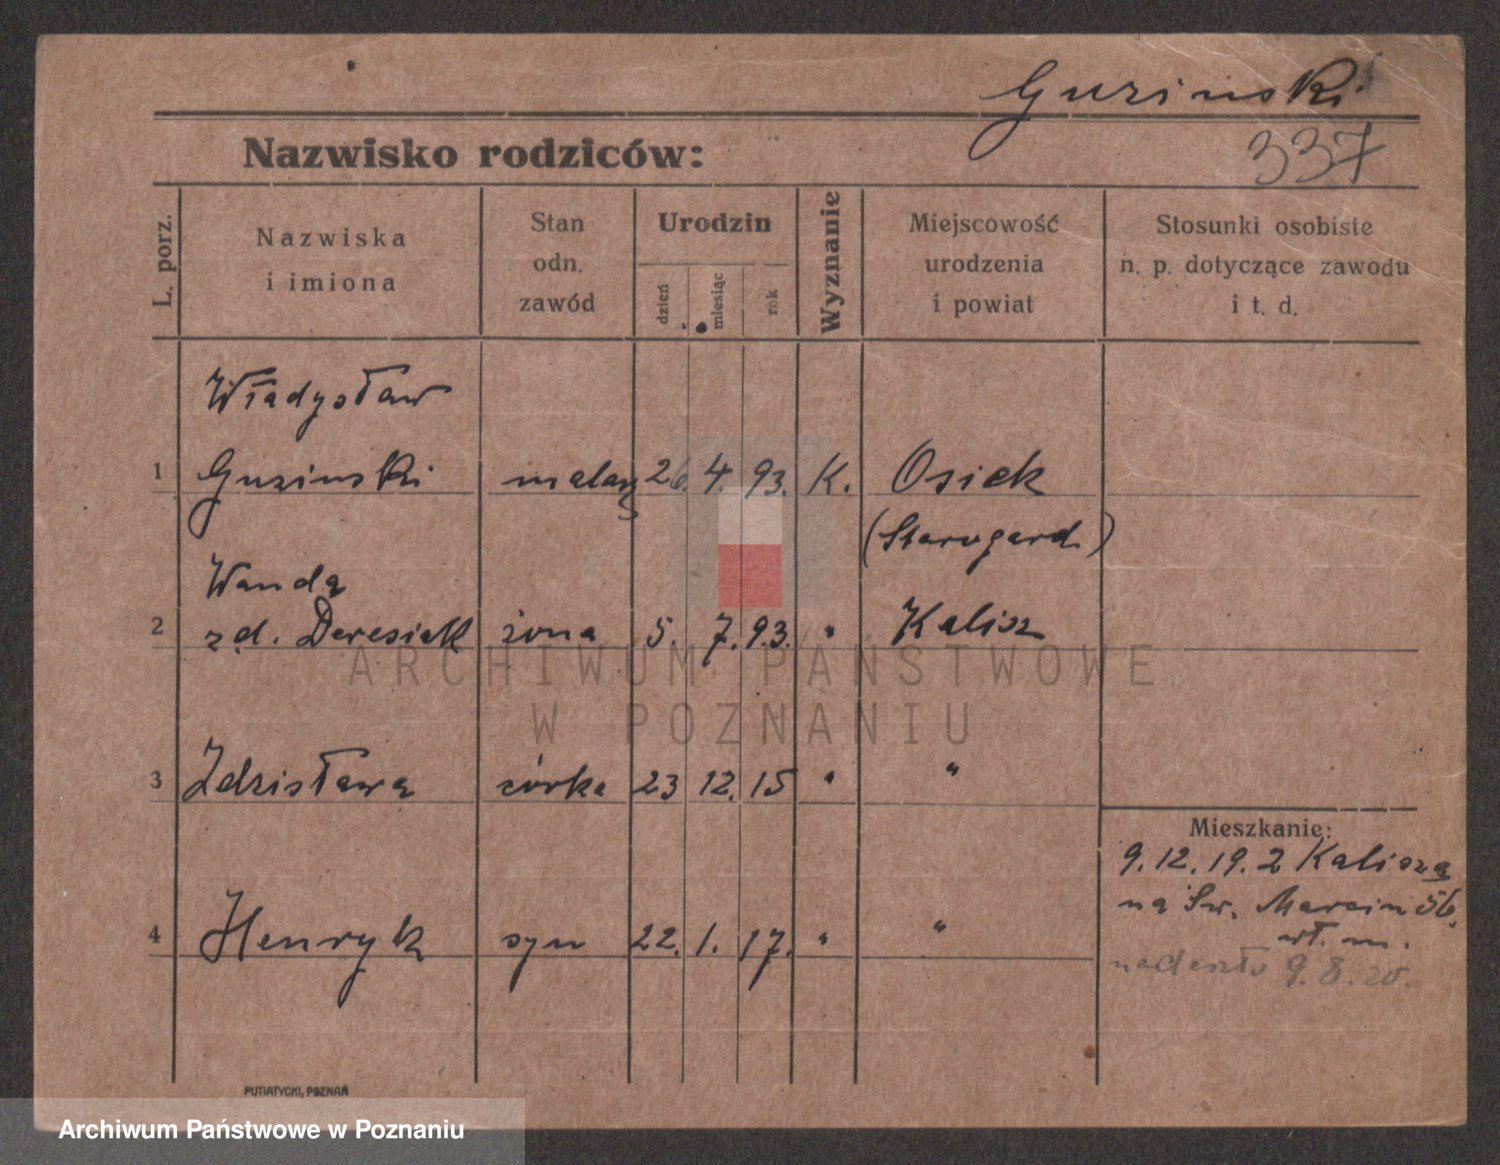 Guziński
337
Nazwisko rodziców:
L. porz.
Nazwiska
i imiona
Stan
odn.
zawód
Urodzin
dzień
miesiąc
rok
Wyznanie
Miejscowość
urodzenia
i powiat
Stosunki osobiste
n. p. dotyczące zawodu
i t. d.
Władysław
1 Guzinski malarz 26. 4. 93. K. Osiek
(Starogard)
Wanda
2 z d. Deresiak żona 5. 7. 93. " Kalisz
3 Zdzisława córka 23 12. 15 " "
Mieszkanie:
9. 12. 19. z Kalisza
na Św. Marcin 56.
wł. m.
4 Henryk syn 22. 1. 17. " "
nadeszło 9. 8. 20.
PUTIATYCKI, POZNAŃ
ARCHIWUM PAŃSTWOWE
W POZNANIU
Archiwum Państwowe w Poznaniu